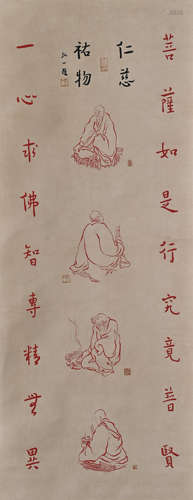 菩薩如是行究竟普賢
仁慈
祐物
弘一題
一心求佛智專精無異